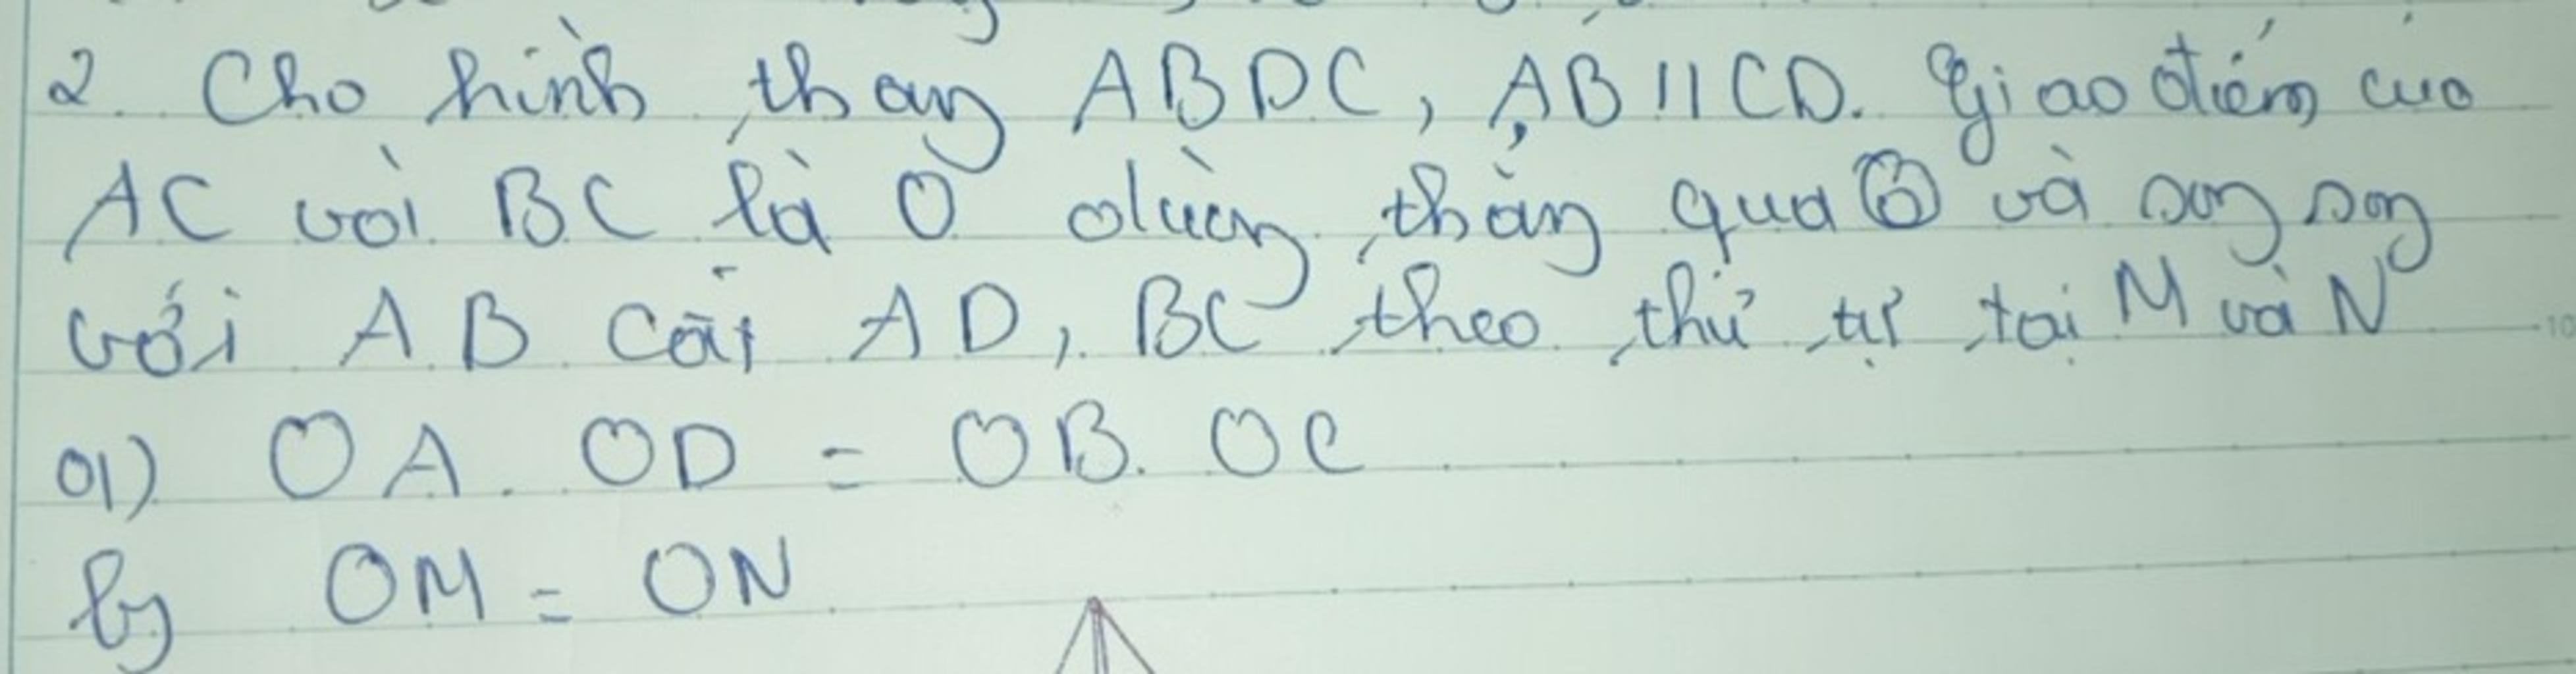 2. Cho hình thang ABDC, AB // CD. Giao điểm của
AC với BC là O đường thẳng qua O và song song
với AB cắt AD, BC theo thứ tự tại M và N
a) OA. OD = OB. OC
b) OM = ON